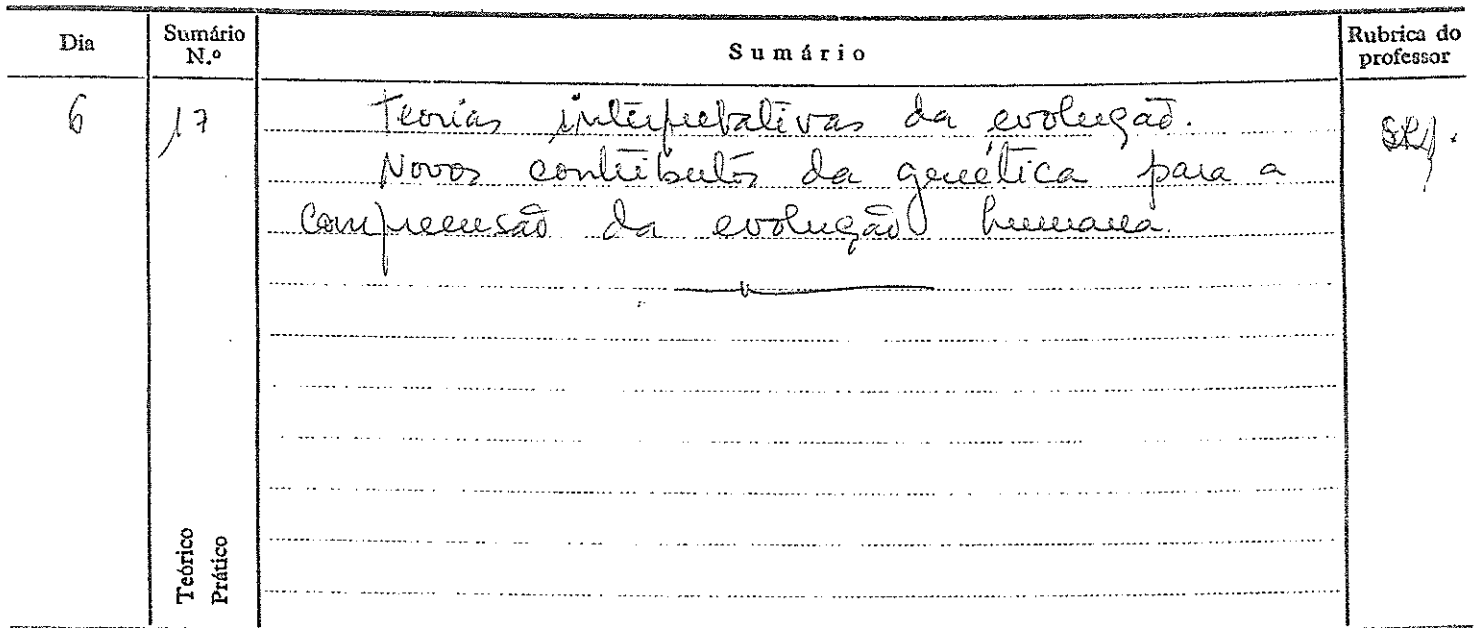 Dia Sumário N.º Sumário Rubrica do professor
6 17 Teorias interpretativas da evolução.
Novos contributos da genética para a
compreensão da evolução humana.
Teórico
Prático